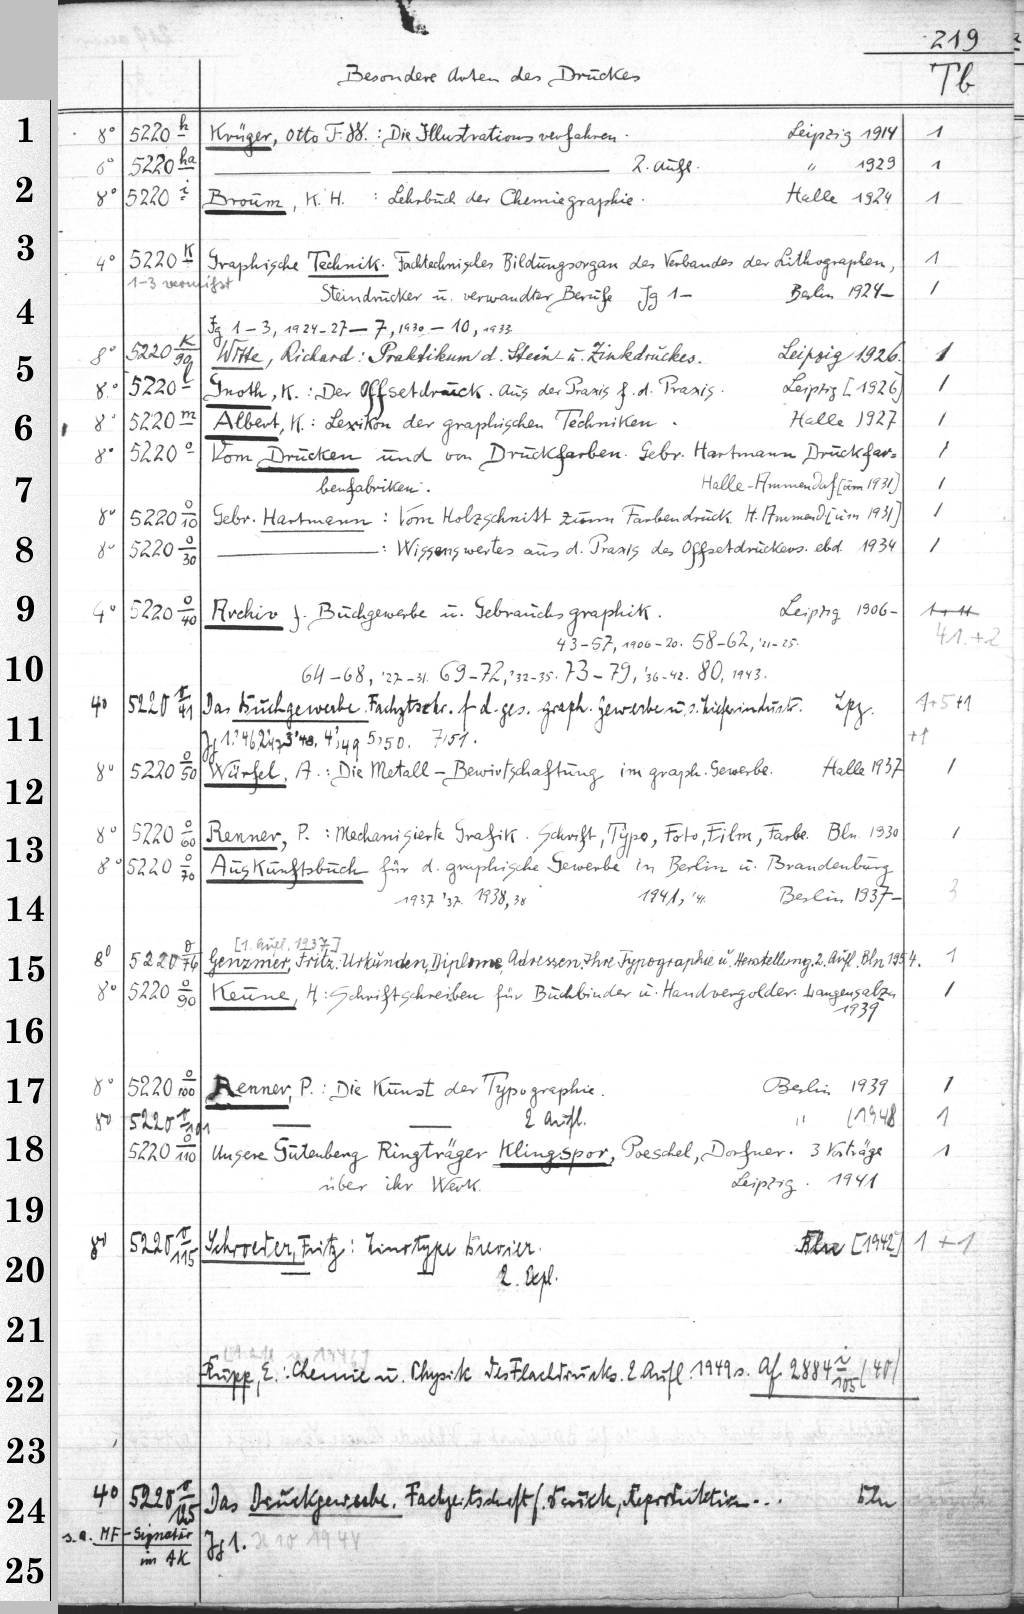 219
Besondere Arten des Druckes Tb
1
8° 5220 h Krüger, Otto F. W. : Die Illustrationsverfahren. Leipzig 1914 1
8° 5220 ha 2. Aufl. " 1929 1
2
8° 5220 i Broum, K. H. : Lehrbuch der Chemiegraphie. Halle 1924 1
3
4° 5220 K Graphische Technik. Fachtechnisches Bildungsorgan des Verbandes der Lithographen, 1
1-3 vermißt Steindrucker u. verwandter Berufe Jg 1— Berlin 1924— 1
4
Jg 1-3, 1924-27 — 7, 1930 — 10, 1933
5
8° 5220 K/90 Witte, Richard : Praktikum d. Stein- u. Zinkdruckes. Leipzig 1926. 1
8° 5220 l Gnoth, K. : Der Offsetdruck. Aus der Praxis f. d. Praxis. Leipzig [1926] 1
6
8° 5220 m Albert, K. : Lexikon der graphischen Techniken. Halle 1927 1
8° 5220 o Vom Drucken und von Druckfarben. Gebr. Hartmann Druckfar= 1
7
benfabriken. Halle-Ammendorf [um 1931] 1
8° 5220 o/10 Gebr. Hartmann : Vom Holzschnitt zum Farbendruck. H. Ammend [um 1931] 1
8
8° 5220 o/30 : Wissenswertes aus d. Praxis des Offsetdruckers. ebd. 1934 1
9
4° 5220 o/40 Archiv f. Buchgewerbe u. Gebrauchsgraphik. Leipzig 1906-
43-57, 1906-20. 58-62, '21-25. 41.+2
10
64-68, '27-31. 69-72, '32-35. 73-79, '36-42. 80, 1943.
4° 5220 o/41 Das Buchgewerbe. Fachztschr. f. d. ges. graph. Gewerbe u. s. Zulieferindustr. Lpz. 1+5+1
11
Jg 1.'46 2'47 3'48. 4,'49 5,'50. 7,'51. +1
8° 5220 o/50 Würfel, A. : Die Metall-Bewirtschaftung im graph. Gewerbe. Halle 1937 1
12
13
8° 5220 o/60 Renner, P. : Mechanisierte Grafik. Schrift, Typo, Foto, Film, Farbe. Bln. 1930 1
8° 5220 o/70 Auskunftsbuch für d. graphische Gewerbe in Berlin u. Brandenburg
14
1937 '37. 1938, 38 1941, '41. Berlin 1937- 3
[1. Aufl. 1937]
15
8° 5220 o/76 Genzmer, Fritz: Urkunden, Diplome, Adressen. Ihre Typographie u. Herstellung. 2. Aufl. Bln 1954. 1
8° 5220 o/90 Keune, H. : Schriftschreiben für Buchbinder u. Handvergolder. Langensalza 1
1939
16
17
8° 5220 o/100 Renner, P. : Die Kunst der Typographie. Berlin 1939 1
8° 5220 o/101 2 Aufl. " (1948 1
18
5220 o/110 Unsere Gutenberg Ringträger Klingspor, Poeschel, Dorfner. 3 Vorträge 1
über ihr Werk. Leipzig. 1941
19
8° 5220 o/115 Schroeder, Fritz : Linotype Brevier. Bln [1942] 1+1
20
2. Expl.
21
Rupp, E. : Chemie u. Physik des Flachdrucks. 2 Aufl. 1949 s. Af 2884 i/105 (4°)
22
23
4° 5220 o/125 Das Druckgewerbe. Fachzeitschrift f. Druck, Reproduktion... Bln
24
s. a. MF-Signatur Jg 1.
im AK
25